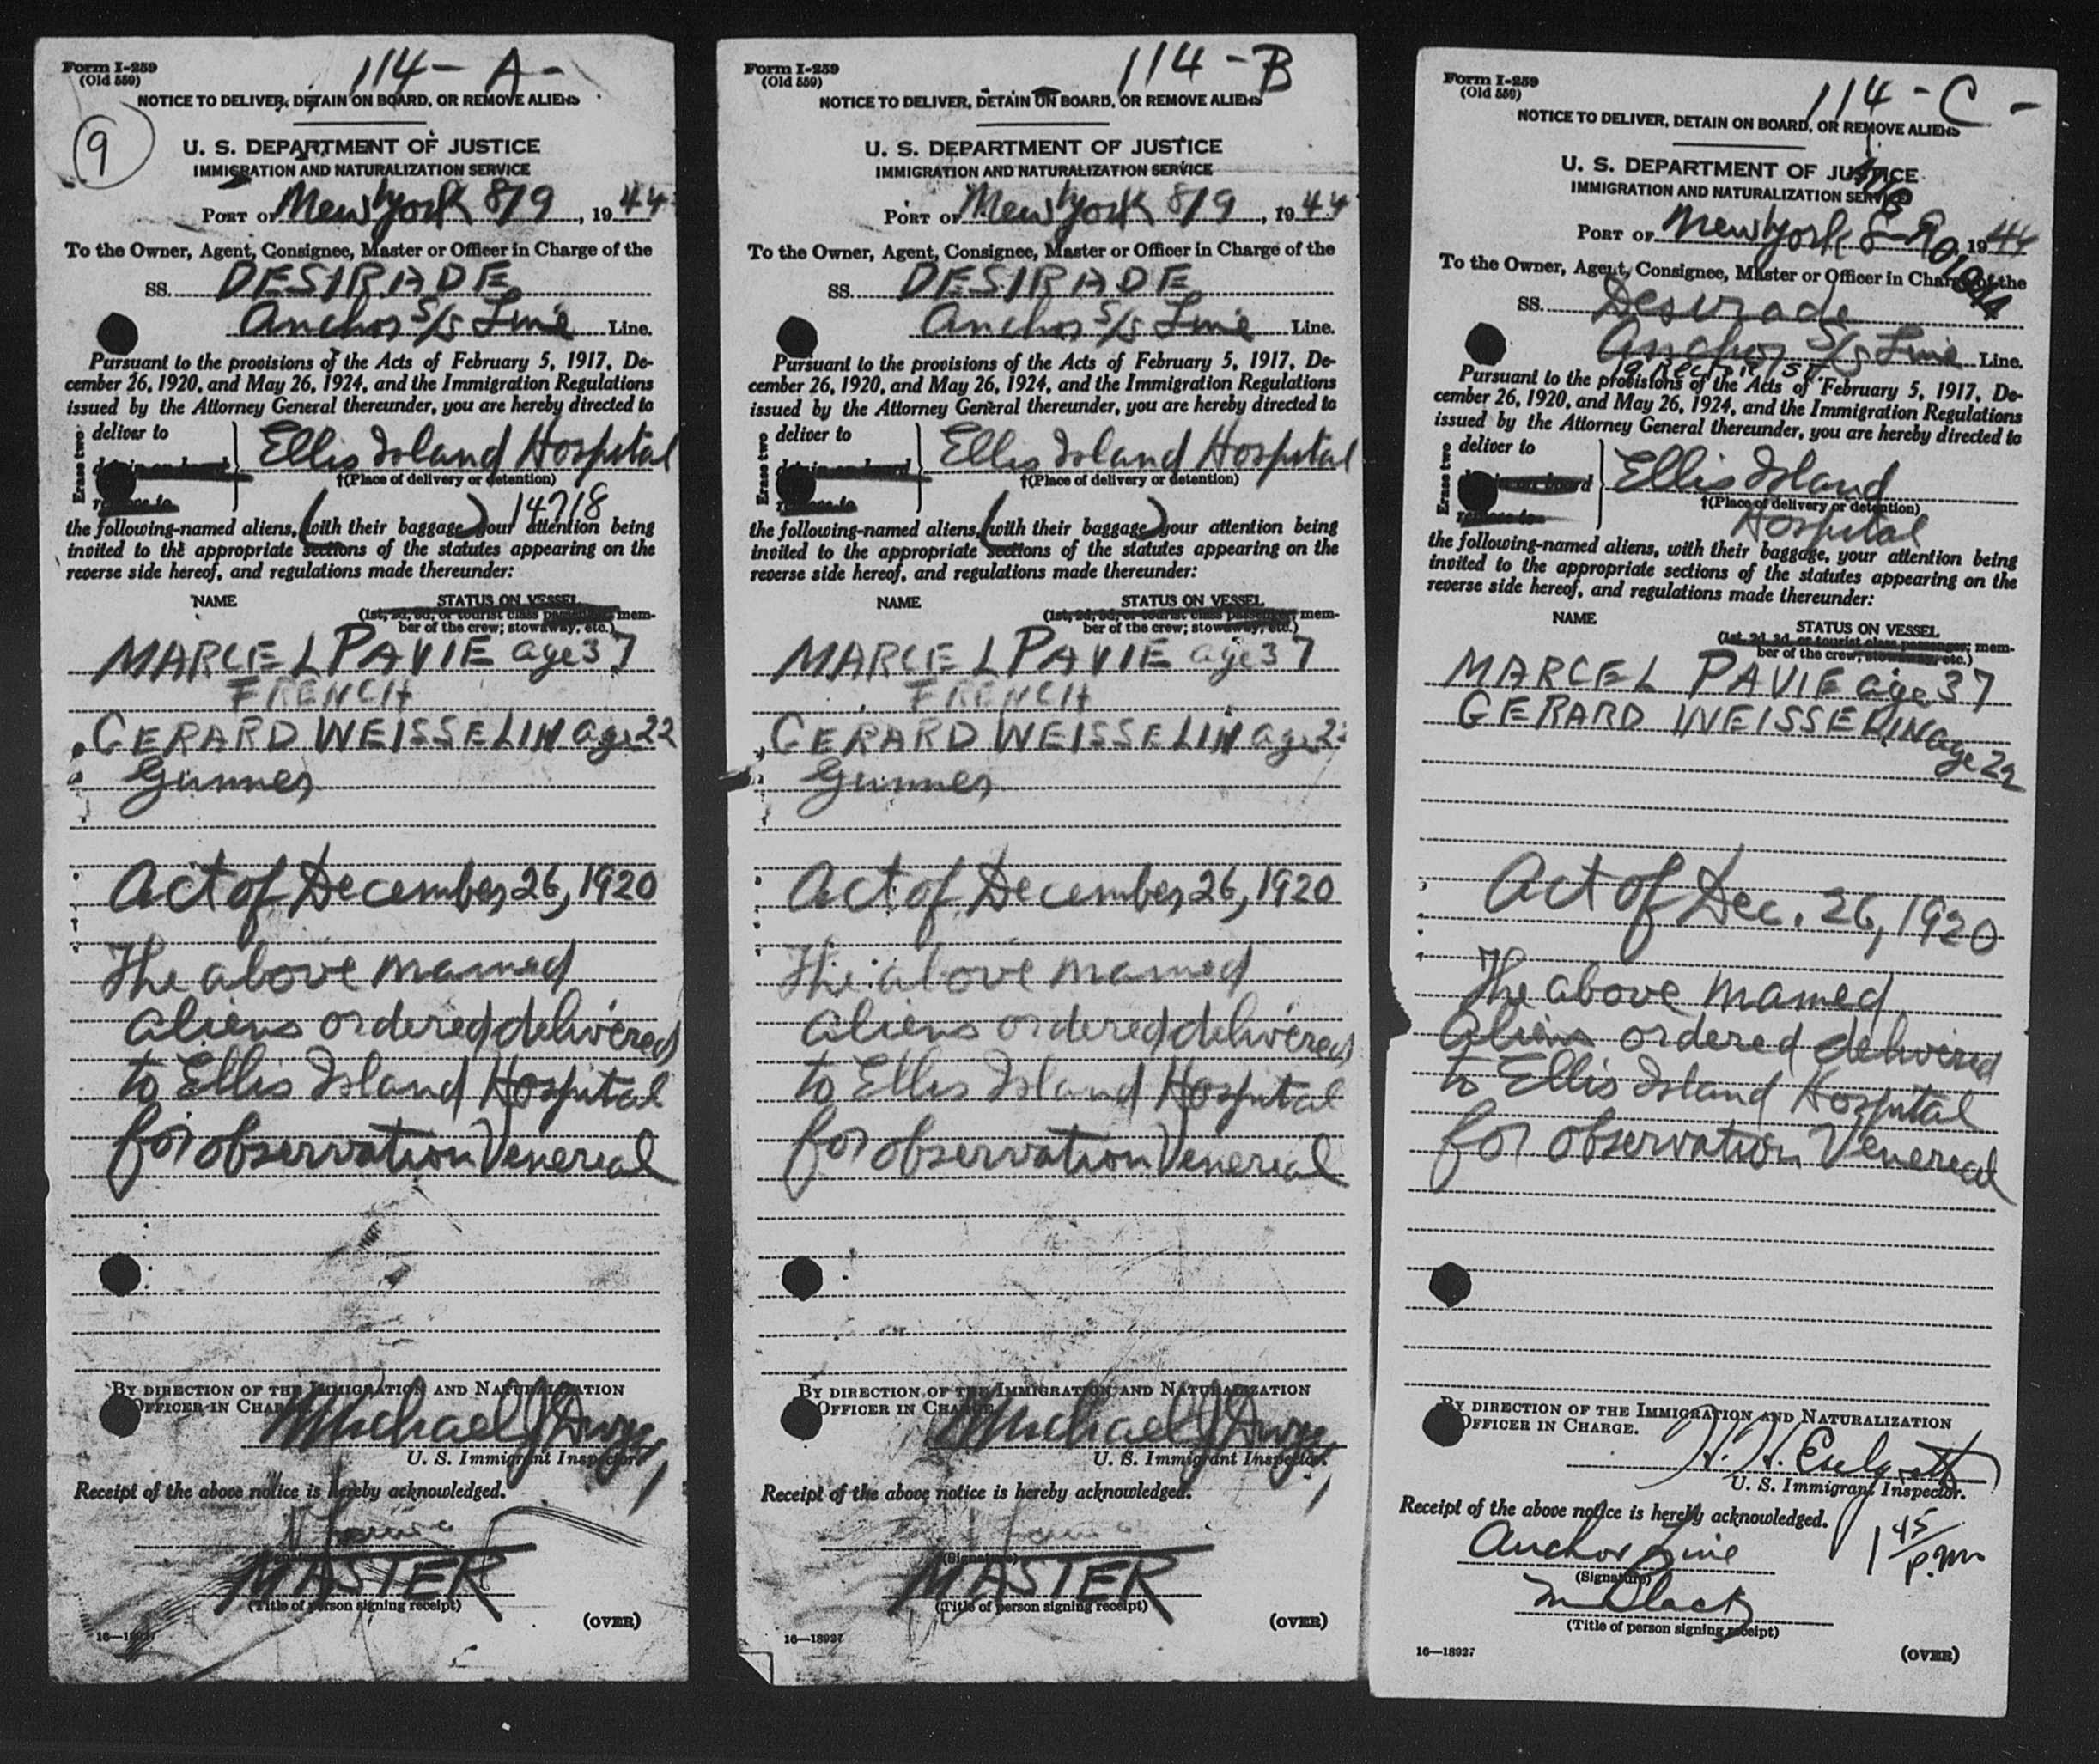 Form I-259
(Old 559)
114 - A -
NOTICE TO DELIVER, DETAIN ON BOARD, OR REMOVE ALIENS
9
U. S. DEPARTMENT OF JUSTICE
IMMIGRATION AND NATURALIZATION SERVICE
PORT OF New York 8/9, 1944
To the Owner, Agent, Consignee, Master or Officer in Charge of the
SS. DESIRADE
Anchor S/S Line Line.
Pursuant to the provisions of the Acts of February 5, 1917, De-
cember 26, 1920, and May 26, 1924, and the Immigration Regulations
issued by the Attorney General thereunder, you are hereby directed to
Erase two
deliver to
detain on board
remove to
Ellis Island Hospital
†(Place of delivery or detention)
14718
the following-named aliens, (with their baggage) your attention being
invited to the appropriate sections of the statutes appearing on the
reverse side hereof, and regulations made thereunder:
NAME STATUS ON VESSEL
(1st, 2d, 3d, or tourist class passenger; mem-
ber of the crew; stowaway, etc.)
MARCEL PAVIE age 37
FRENCH
GERARD WEISSELIN age 22
Gunner
Act of December 26, 1920
The above named
aliens ordered delivered
to Ellis Island Hospital
for observation Venereal
BY DIRECTION OF THE IMMIGRATION AND NATURALIZATION
OFFICER IN CHARGE.
Michael J
U. S. Immigrant Inspector.
Receipt of the above notice is hereby acknowledged.
(Signature)
MASTER
(Title of person signing receipt)
(OVER)
16—18927
Form I-259
(Old 559)
114 - B
NOTICE TO DELIVER, DETAIN ON BOARD, OR REMOVE ALIENS
U. S. DEPARTMENT OF JUSTICE
IMMIGRATION AND NATURALIZATION SERVICE
PORT OF New York 8/9, 1944
To the Owner, Agent, Consignee, Master or Officer in Charge of the
SS. DESIRADE
Anchor S/S Line Line.
Pursuant to the provisions of the Acts of February 5, 1917, De-
cember 26, 1920, and May 26, 1924, and the Immigration Regulations
issued by the Attorney General thereunder, you are hereby directed to
Erase two
deliver to
detain on board
remove to
Ellis Island Hospital
†(Place of delivery or detention)
the following-named aliens, (with their baggage) your attention being
invited to the appropriate sections of the statutes appearing on the
reverse side hereof, and regulations made thereunder:
NAME STATUS ON VESSEL
(1st, 2d, 3d, or tourist class passenger; mem-
ber of the crew; stowaway, etc.)
MARCEL PAVIE age 37
FRENCH
GERARD WEISSELIN age 22
Gunner
Act of December 26, 1920
The above named
aliens ordered delivered
to Ellis Island Hospital
for observation Venereal
BY DIRECTION OF THE IMMIGRATION AND NATURALIZATION
OFFICER IN CHARGE.
Michael J
U. S. Immigrant Inspector.
Receipt of the above notice is hereby acknowledged.
(Signature)
MASTER
(Title of person signing receipt)
(OVER)
16—18927
Form I-259
(Old 559)
114 - C -
NOTICE TO DELIVER, DETAIN ON BOARD, OR REMOVE ALIENS
U. S. DEPARTMENT OF JUSTICE
IMMIGRATION AND NATURALIZATION SERVICE
PORT OF New York 8-9 1944
To the Owner, Agent, Consignee, Master or Officer in Charge of the
SS. Desirade
Anchor S/S Line Line.
19 Rector St
Pursuant to the provisions of the Acts of February 5, 1917, De-
cember 26, 1920, and May 26, 1924, and the Immigration Regulations
issued by the Attorney General thereunder, you are hereby directed to
Erase two
deliver to
detain on board
remove to
Ellis Island
†(Place of delivery or detention)
Hospital
the following-named aliens, with their baggage, your attention being
invited to the appropriate sections of the statutes appearing on the
reverse side hereof, and regulations made thereunder:
NAME STATUS ON VESSEL
(1st, 2d, 3d, or tourist class passenger; mem-
ber of the crew; stowaway, etc.)
MARCEL PAVIE age 37
GERARD WEISSELIN age 22
Act of Dec. 26, 1920
The above named
aliens ordered delivered
to Ellis Island Hospital
for observation Venereal
BY DIRECTION OF THE IMMIGRATION AND NATURALIZATION
OFFICER IN CHARGE.
H. H.
U. S. Immigrant Inspector.
Receipt of the above notice is hereby acknowledged.
Anchor Line
1 45/p.m.
(Signature)
M Black
(Title of person signing receipt)
16—18927
(OVER)